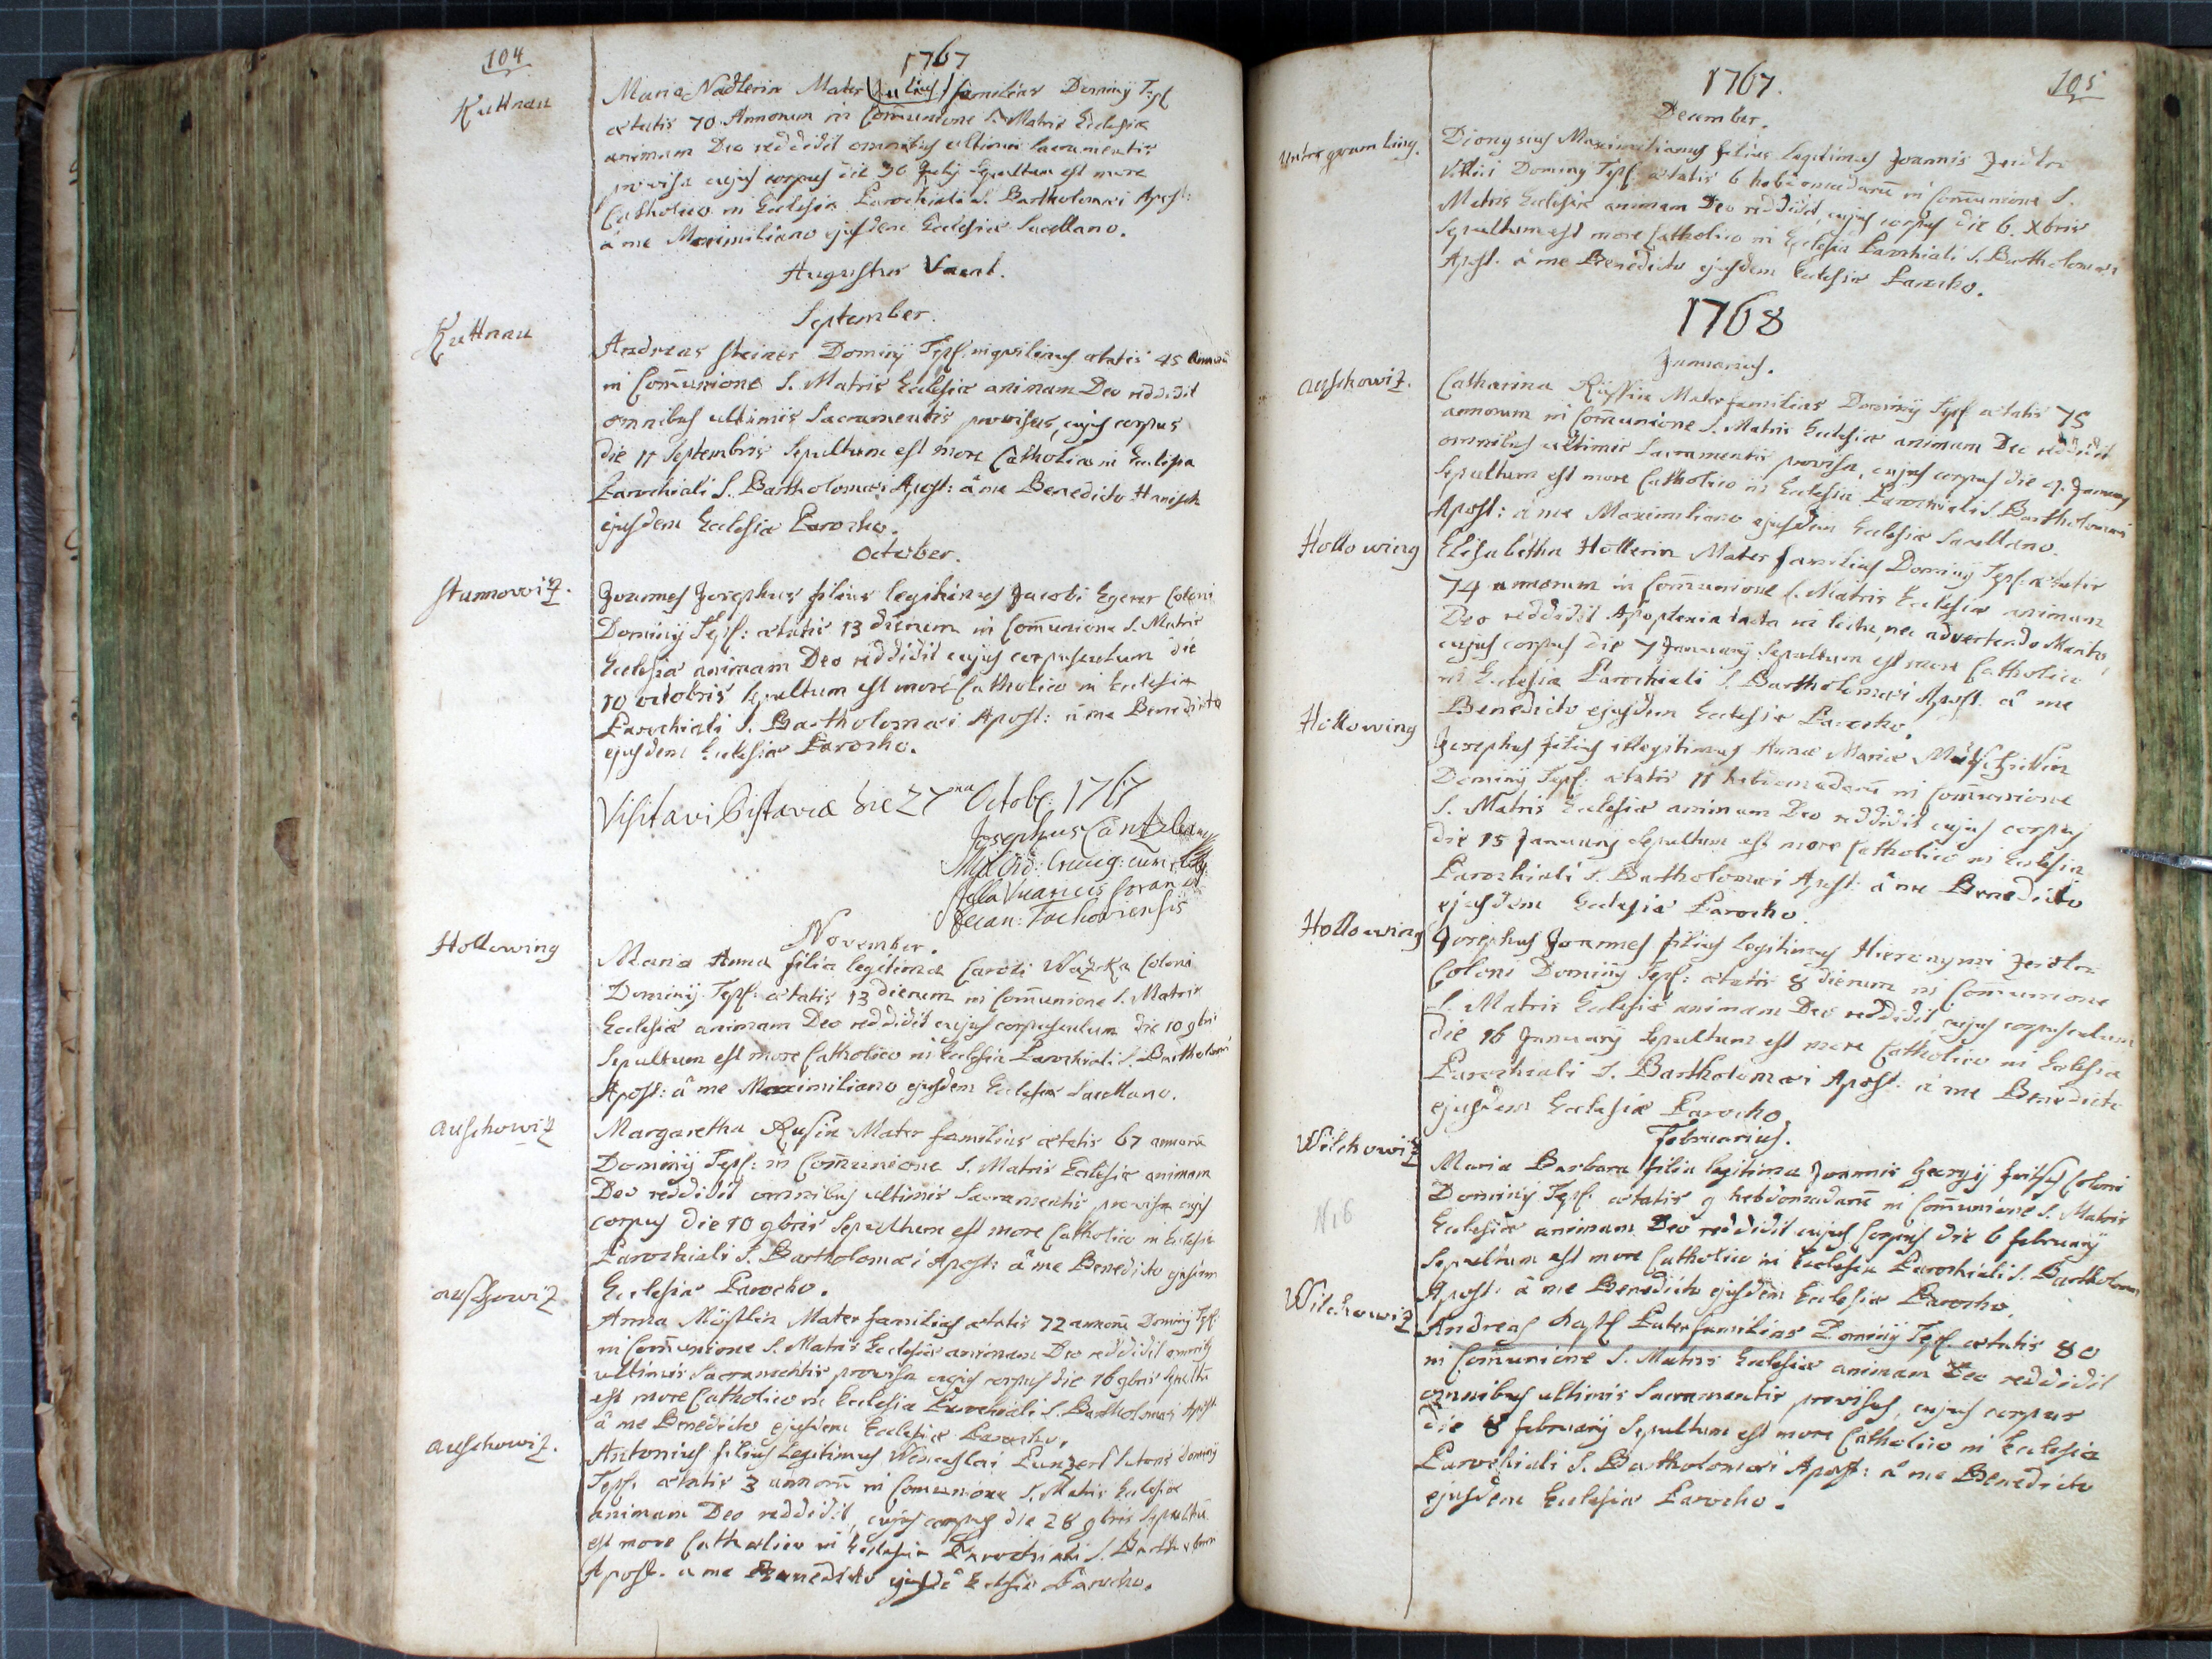 104
1767
Kuttnau
Maria Nadlerin Mater familias Dominy Tepl
ætatis 70 Annorum in Com̄unione S. Matris Ecclesiæ
animam Deo reddidit omnibus ultimis Sacramentis
provisa cujus corpus die 30 July Sepultum est more
Catholico in Ecclesia Parochiali S. Bartholomæi Apost:
â me Maximiliano ejusdem Ecclesiæ Sacellano.
Augustus Vacat.
September.
Kuttnau
Andreas Steiner Dominy Tepl. inquilinus ætatis 45 Annorū
in Com̄unione S. Matris Ecclesiæ animam Deo reddidit
omnibus ultimis Sacramentis provisus, cujus corpus
die 11 Septembris Sepultum est more Catholico in Ecclesia
Parochiali S. Bartholomæi Apost: â me Benedicto Hanisch
ejusdem Ecclesiæ Parocho.
October.
Stannowiz.
Joannes Josephus filius legitimus Jacobi Egerer Coloni
Dominy Tepl: ætatis 13 dierum in Com̄unione S. Matris
Ecclesiæ animam Deo reddidit cujus corpusculum die
10 octobris Sepultum est more Catholico in Ecclesia
Parochiali S. Bartholomæi Apost: â me Benedicto
ejusdem Ecclesiæ Parocho.
Visitavi Pistaviæ die 27ma Octob: 1767
Josephus
Vicarius foran et
Decan: Tachoviensis
November.
Hollowing
Maria Anna filia legitima Caroli Wazka Coloni
Dominy Tepl: ætatis 13 dierum in Com̄unione S. Matris
Ecclesiæ animam Deo reddidit cujus corpusculum die 10 9bris
Sepultum est more Catholico in Ecclesia Parochiali S. Bartholomæi
Apost: â me Maximiliano ejusdem Ecclesiæ Sacellano.
Auschowiz
Margaretha Rusin Mater familias ætatis 67 annorū
Dominy Tepl: in Com̄unione S. Matris Ecclesiæ animam
Deo reddidit omnibus ultimis Sacramentis provisa cujus
corpus die 10 9bris Sepultum est more Catholico in Ecclesia
Parochiali S. Bartholomæi Apost: â me Benedicto ejusdem
Ecclesiæ Parocho.
Auschowiz
Anna Mästlin Mater familias ætatis 72 annorū Dominy Tepl:
in Com̄unione S. Matris Ecclesiæ animam Deo reddidit omnibus
ultimis Sacramentis provisa cujus corpus die 16 9bris Sepultū
est more Catholico in Ecclesia Parochiali S. Bartholomæi Apost
â me Benedicto ejusdem Ecclesiæ Parocho.
Auschowiz.
Antonius filius Legitimus Wenceslai Lunzert Sutoris Dominy
Tepl. ætatis 3 annorū in Comunione S. Matris Ecclesiæ
animam Deo reddidit, cujus corpus die 28 9bris Sepultū
est more Catholico in Ecclesia Parochiali S. Bartholomæi
Apost. a me Benedicto ejusdē Ecclesiæ Parocho.
1767.
105
December.
Untergramling.
Dionysius Maximilianus filius legitimus Joannis Zeidler
Villici Dominy Tepl. ætatis 6 hebdomadarū in Com̄unione S.
Matris Ecclesiæ animam Deo reddidit, cujus corpus die 6. Xbris
Sepultum est more Catholico in Ecclesia Parochiali S. Bartholomæi
Apost. â me Benedicto ejusdem Ecclesiæ Parocho.
1768
Januarius.
Auschowiz.
Catharina Mater familias Dominy Tepl ætatis 75
annorum in Com̄unione S. Matris Ecclesiæ animam Deo reddidit
omnibus ultimis Sacramentis provisa, cujus corpus die January
Sepultum est more Catholico in Ecclesia Parochiali S. Bartholomæi
Apost: â me Maximiliano ejusdem Ecclesiæ Sacellano.
Hollowing
Elisabetha Hollerin Mater familias Dominy Tepl. ætatis
74 annorum in Com̄unione S. Matris Ecclesiæ animam
Deo reddidit Apoplexia tacta in lecto, nec advertendo Maritus,
cujus corpus die 7 January Sepultum est more Catholico
in Ecclesia Parochiali S. Bartholomæi Apost. â me
Benedicto ejusdem Ecclesiæ Parocho.
Hollowing
Josephus filius illegitimus Annæ Mariæ
Dominy Tepl. ætatis 11 hebdomadarū in Com̄unione
S. Matris Ecclesiæ animam Deo reddidit cujus corpus
die 15 January Sepultum est more Catholico in Ecclesia
Parochiali S. Bartholomæi Apost: â me Benedicto
ejusdem Ecclesiæ Parocho.
Hollowing
Josephus Joannes filius legitimus Hieronymi Zeidler
Coloni Dominy Tepl: ætatis 8 dierum in Com̄unione
S. Matris Ecclesiæ animam Deo reddidit, cujus corpusculum
die 16 January Sepultum est more Catholico in Ecclesia
Parochiali S. Bartholomæi Apost: â me Benedicto
ejusdem Ecclesiæ Parocho.
Februarius.
Wilchowiz
Maria Barbara filia legitima Joannis Georgy Coloni
Dominy Tepl. ætatis 9 hebdomadarū in Com̄unione S. Matris
Ecclesiæ animam Deo reddidit cujus Corpus die 6 february
Sepultum est more Catholico in Ecclesia Parochiali S. Bartholomæi
Apost: â me Benedicto ejusdem Ecclesiæ Parocho.
N:6
Wilchowiz
Andreas Pater familias Dominy Tepl. ætatis 80
in Com̄unione S. Matris Ecclesiæ animam Deo reddidit
omnibus ultimis Sacramentis provisus, cujus corpus
die 8 february Sepultum est more Catholico in Ecclesia
Parochiali S. Bartholomæi Apost: â me Benedicto
ejusdem Ecclesiæ Parocho.